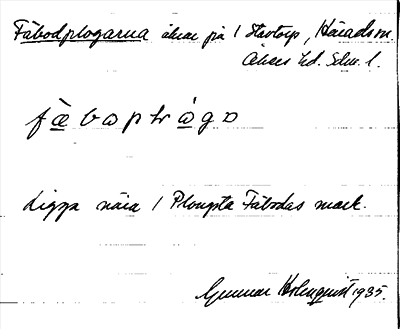 Fäbodplogarna åkrar på 1 Stavtorp, Häradsm.
Åkers hd. Sdm. l.
fäbaptrágo
Ligga nära 1 Plougsta Fäbodas mark.
Gunnar Holmquist 1935.